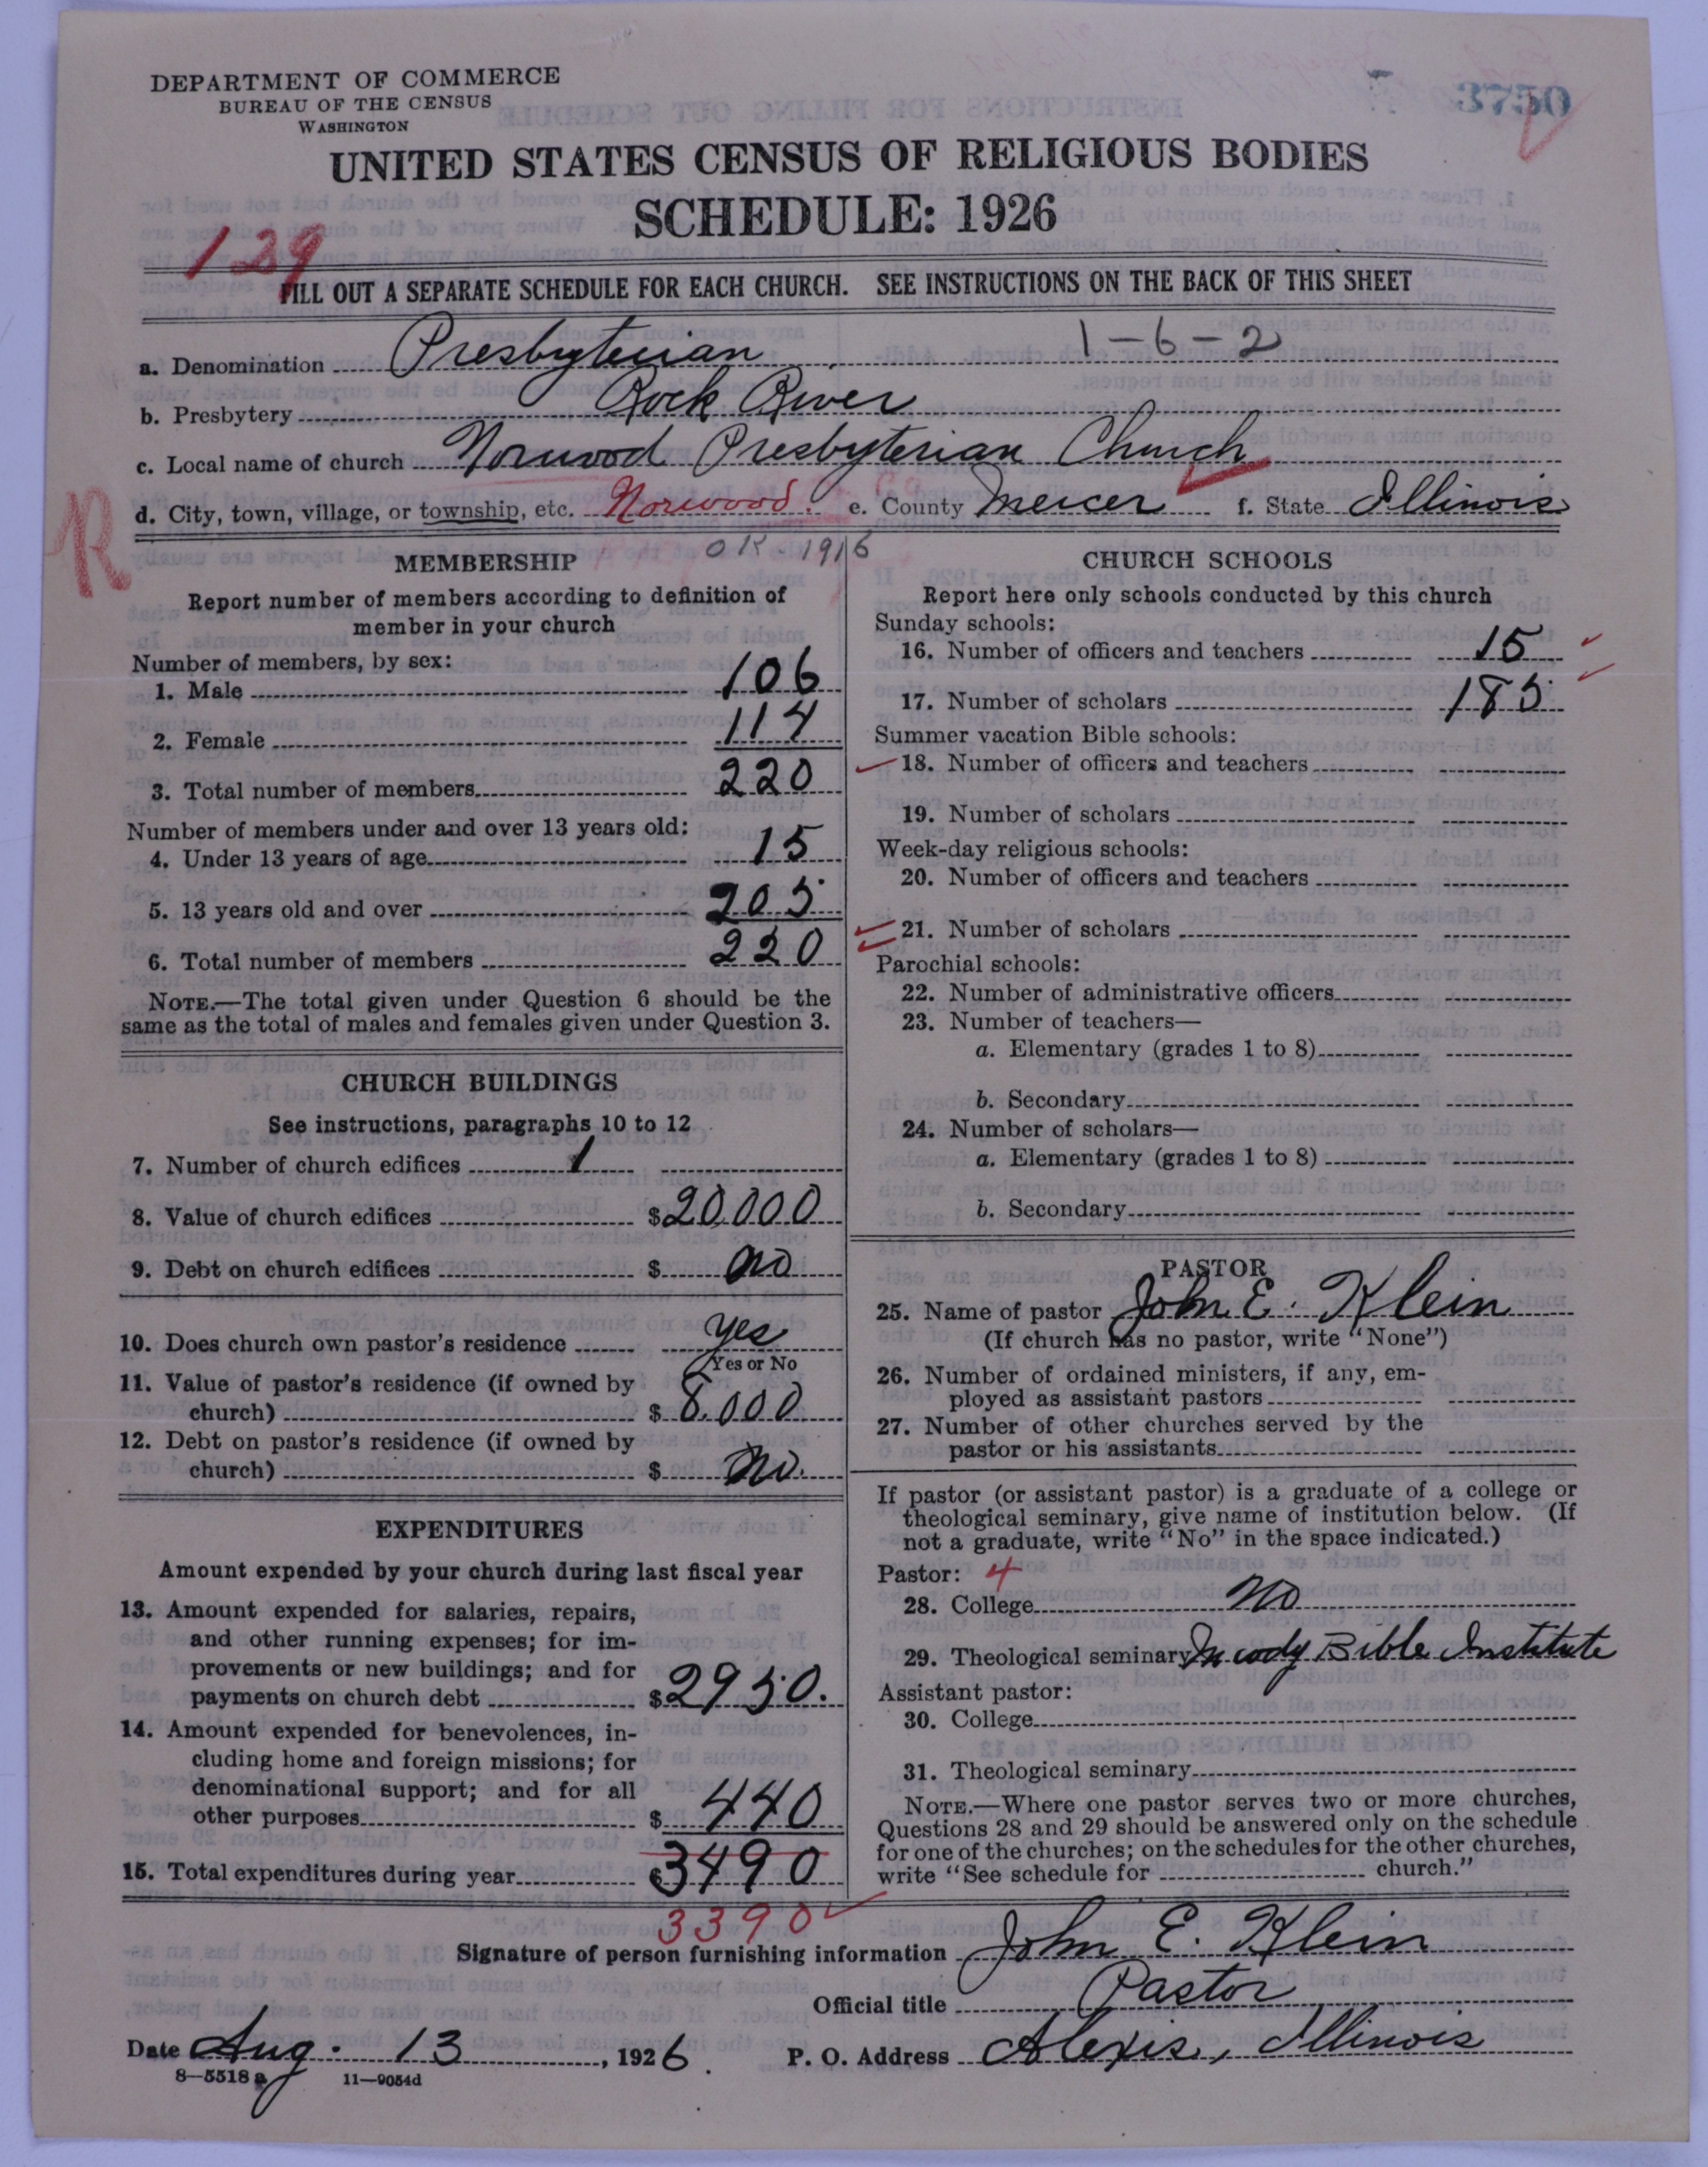 DEPARTMENT OF COMMERCE
BUREAU OF THE CENSUS
WASHINGTON
3750
UNITED STATES CENSUS OF RELIGIOUS BODIES
SCHEDULE: 1926
129
FILL OUT A SEPARATE SCHEDULE FOR EACH CHURCH. SEE INSTRUCTIONS ON THE BACK OF THIS SHEET
a. Denomination Presbyterian 1-6-2
b. Presbytery Rock River
c. Local name of church Norwood Presbyterian Church
d. City, town, village, or township, etc. Norwood. e. County Mercer f. State Illinois
R
OK-1916
MEMBERSHIP
Report number of members according to definition of
member in your church
Number of members, by sex:
1. Male 106
2. Female 114
3. Total number of members 220
Number of members under and over 13 years old:
4. Under 13 years of age 15
5. 13 years old and over 205
6. Total number of members 220
NOTE.—The total given under Question 6 should be the
same as the total of males and females given under Question 3.
CHURCH BUILDINGS
See instructions, paragraphs 10 to 12
7. Number of church edifices 1
8. Value of church edifices $20,000
9. Debt on church edifices $ no
10. Does church own pastor's residence yes
Yes or No
11. Value of pastor's residence (if owned by
church) $ 8,000
12. Debt on pastor's residence (if owned by
church) $ no.
EXPENDITURES
Amount expended by your church during last fiscal year
13. Amount expended for salaries, repairs,
and other running expenses; for im-
provements or new buildings; and for
payments on church debt $2950.
14. Amount expended for benevolences, in-
cluding home and foreign missions; for
denominational support; and for all
other purposes $ 440
15. Total expenditures during year $3490
3390
CHURCH SCHOOLS
Report here only schools conducted by this church
Sunday schools:
16. Number of officers and teachers 15
17. Number of scholars 185
Summer vacation Bible schools:
18. Number of officers and teachers
19. Number of scholars
Week-day religious schools:
20. Number of officers and teachers
21. Number of scholars
Parochial schools:
22. Number of administrative officers
23. Number of teachers—
a. Elementary (grades 1 to 8)
b. Secondary
24. Number of scholars—
a. Elementary (grades 1 to 8)
b. Secondary
PASTOR
25. Name of pastor John E. Klein
(If church has no pastor, write "None")
26. Number of ordained ministers, if any, em-
ployed as assistant pastors
27. Number of other churches served by the
pastor or his assistants
If pastor (or assistant pastor) is a graduate of a college or
theological seminary, give name of institution below. (If
not a graduate, write "No" in the space indicated.)
Pastor: 4
28. College no
29. Theological seminary Moody Bible Institute
Assistant pastor:
30. College
31. Theological seminary
NOTE.—Where one pastor serves two or more churches,
Questions 28 and 29 should be answered only on the schedule
for one of the churches; on the schedules for the other churches,
write "See schedule for church."
Signature of person furnishing information John E. Klein
Official title Pastor
Date Aug. 13, 1926. P. O. Address Alexis, Illinois
8—5518a 11—9054d